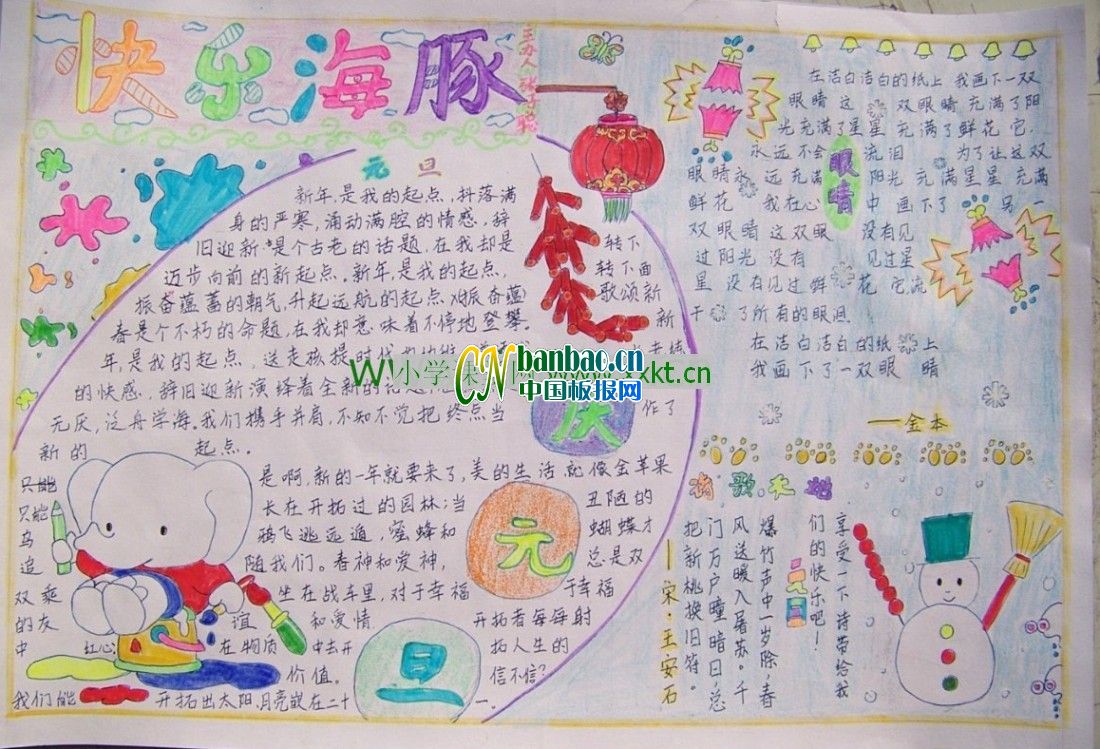 快乐海豚
元旦
新年是我的起点,抖落满
身的严寒,涌动满腔的情感,辞
旧迎新是个古老的话题,在我却是
迈步向前的新起点。新年是我的起点,
振奋蕴蓄的朝气,升起远航的起点
春是个不朽的命题,在我却意味着不停地登攀。
年是我的起点,送走孩提时代
的快感,辞旧迎新演绎着全新的
无厌,泛舟学海,我们携手并肩,不知不觉把终点当
作了
新的起点。
转下
转下面
歌颂新
新
庆
是啊,新的一年就要来了,美的生活就像金苹果
只能长在开拓过的园林;当丑陋的
只能
乌鸦飞逃远遁,蜜蜂和蝴蝶才
追随我们。春神和爱神,总是双
双乘坐在战车里,对于幸福于幸福
的友谊和爱情开拓者每每射
中红心在物质中去开拓人生的
价值。信不信?
我们能开拓出太阳,月亮嵌在二十一。
元
旦
在洁白洁白的纸上 我画下一双
眼睛 这双眼睛 充满了阳
光 充满了星星 充满了鲜花 它
永远不会流泪 为了让这双
眼睛永远充满阳光 充满星星 充满
鲜花 我在心中画下了另一
双眼睛 这双眼没有见
过阳光 没有见过星
星 没有见过鲜花 它流
干了所有的眼泪
在洁白洁白的纸上
我画下了一双眼睛
——金本
眼睛
享受一下诗带给我
们的快乐吧!
元旦
爆竹声中一岁除,春
风送暖入屠苏。千
门万户曈曈日,总
把新桃换旧符。
——宋·王安石
CN banbao.cn
中国板报网
W小学课件网www.xxkt.cn